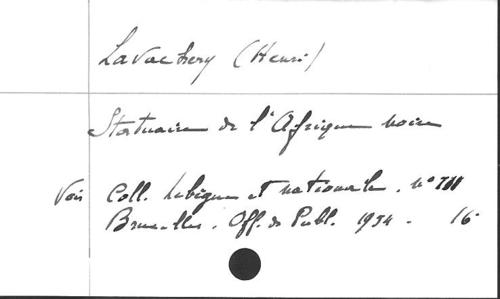 Lavachery (Henri)
Statuaire de l'Afrique noire
Voir Coll. Lebègue et nationale. N°
Bruxelles. Off. de Publ. 1954 - 16°